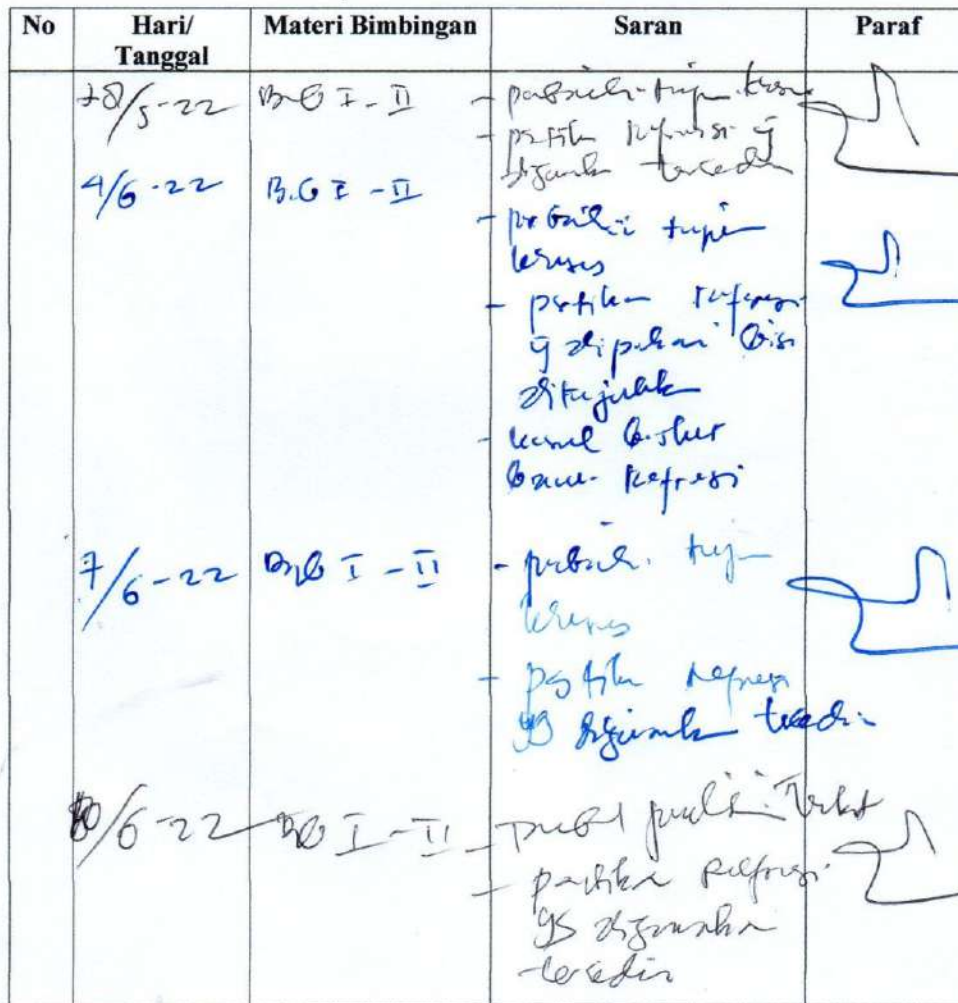 No Hari/ Tanggal Materi Bimbingan Saran Paraf
28/5-22 Bab I - II - perbaiki tujuan
- pastikan referensi yg
digunakan tersedia
4/6-22 Bab I - II
- perbaiki tujuan
khusus
- pastikan referensi
yg dipakai bisa
ditunjukkan
-
referensi
7/6-22 Bab I - II - perbaiki tujuan
khusus
- pastikan referensi
yg digunakan tersedia
/6-22 Bab I - II -
- pastikan referensi
yg digunakan
tersedia